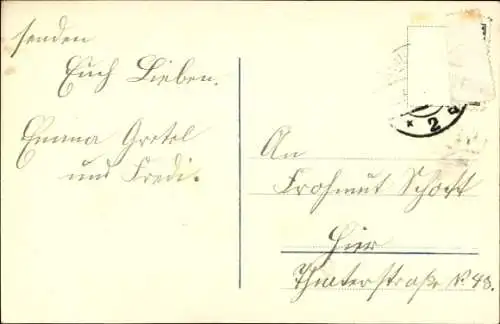 senden
Euch Lieben.
Emma Gretel
und Fredi.
An
Frohmut Schott
Hier
Thurterstraße N. 48.
* 2 a